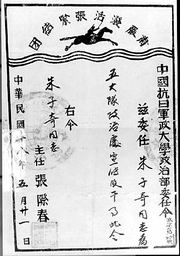 團結緊張活潑嚴肅
中國抗日軍政大學政治部委任令
茲委任 朱子奇同志為
五大隊政治處宣傳幹事此令
右令
朱子奇同志
主任 張際春
中華民國廿八年五月廿一日